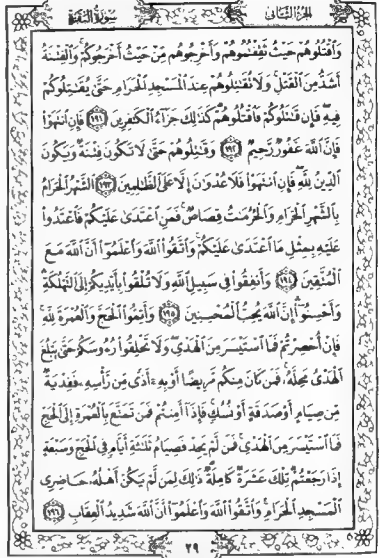 الجزء الثاني
سورة البقرة
وَٱقۡتُلُوهُمۡ حَيۡثُ ثَقِفۡتُمُوهُمۡ وَأَخۡرِجُوهُم مِّنۡ حَيۡثُ أَخۡرَجُوكُمۡۚ وَٱلۡفِتۡنَةُ
أَشَدُّ مِنَ ٱلۡقَتۡلِۚ وَلَا تُقَٰتِلُوهُمۡ عِندَ ٱلۡمَسۡجِدِ ٱلۡحَرَامِ حَتَّىٰ يُقَٰتِلُوكُمۡ
فِيهِۖ فَإِن قَٰتَلُوكُمۡ فَٱقۡتُلُوهُمۡۗ كَذَٰلِكَ جَزَآءُ ٱلۡكَٰفِرِينَ ١٩١ فَإِنِ ٱنتَهَوۡاْ
فَإِنَّ ٱللَّهَ غَفُورٞ رَّحِيمٞ ١٩٢ وَقَٰتِلُوهُمۡ حَتَّىٰ لَا تَكُونَ فِتۡنَةٞ وَيَكُونَ
ٱلدِّينُ لِلَّهِۖ فَإِنِ ٱنتَهَوۡاْ فَلَا عُدۡوَٰنَ إِلَّا عَلَى ٱلظَّٰلِمِينَ ١٩٣ ٱلشَّهۡرُ ٱلۡحَرَامُ
بِٱلشَّهۡرِ ٱلۡحَرَامِ وَٱلۡحُرُمَٰتُ قِصَاصٞۚ فَمَنِ ٱعۡتَدَىٰ عَلَيۡكُمۡ فَٱعۡتَدُواْ
عَلَيۡهِ بِمِثۡلِ مَا ٱعۡتَدَىٰ عَلَيۡكُمۡۚ وَٱتَّقُواْ ٱللَّهَ وَٱعۡلَمُوٓاْ أَنَّ ٱللَّهَ مَعَ
ٱلۡمُتَّقِينَ ١٩٤ وَأَنفِقُواْ فِي سَبِيلِ ٱللَّهِ وَلَا تُلۡقُواْ بِأَيۡدِيكُمۡ إِلَى ٱلتَّهۡلُكَةِ
وَأَحۡسِنُوٓاْۚ إِنَّ ٱللَّهَ يُحِبُّ ٱلۡمُحۡسِنِينَ ١٩٥ وَأَتِمُّواْ ٱلۡحَجَّ وَٱلۡعُمۡرَةَ لِلَّهِۚ
فَإِنۡ أُحۡصِرۡتُمۡ فَمَا ٱسۡتَيۡسَرَ مِنَ ٱلۡهَدۡيِۖ وَلَا تَحۡلِقُواْ رُءُوسَكُمۡ حَتَّىٰ يَبۡلُغَ
ٱلۡهَدۡيُ مَحِلَّهُۥۚ فَمَن كَانَ مِنكُم مَّرِيضًا أَوۡ بِهِۦٓ أَذٗى مِّن رَّأۡسِهِۦ فَفِدۡيَةٞ
مِّن صِيَامٍ أَوۡ صَدَقَةٍ أَوۡ نُسُكٖۚ فَإِذَآ أَمِنتُمۡ فَمَن تَمَتَّعَ بِٱلۡعُمۡرَةِ إِلَى ٱلۡحَجِّ
فَمَا ٱسۡتَيۡسَرَ مِنَ ٱلۡهَدۡيِۚ فَمَن لَّمۡ يَجِدۡ فَصِيَامُ ثَلَٰثَةِ أَيَّامٖ فِي ٱلۡحَجِّ وَسَبۡعَةٍ
إِذَا رَجَعۡتُمۡۗ تِلۡكَ عَشَرَةٞ كَامِلَةٞۗ ذَٰلِكَ لِمَن لَّمۡ يَكُنۡ أَهۡلُهُۥ حَاضِرِي
ٱلۡمَسۡجِدِ ٱلۡحَرَامِۚ وَٱتَّقُواْ ٱللَّهَ وَٱعۡلَمُوٓاْ أَنَّ ٱللَّهَ شَدِيدُ ٱلۡعِقَابِ ١٩٦
٢٩